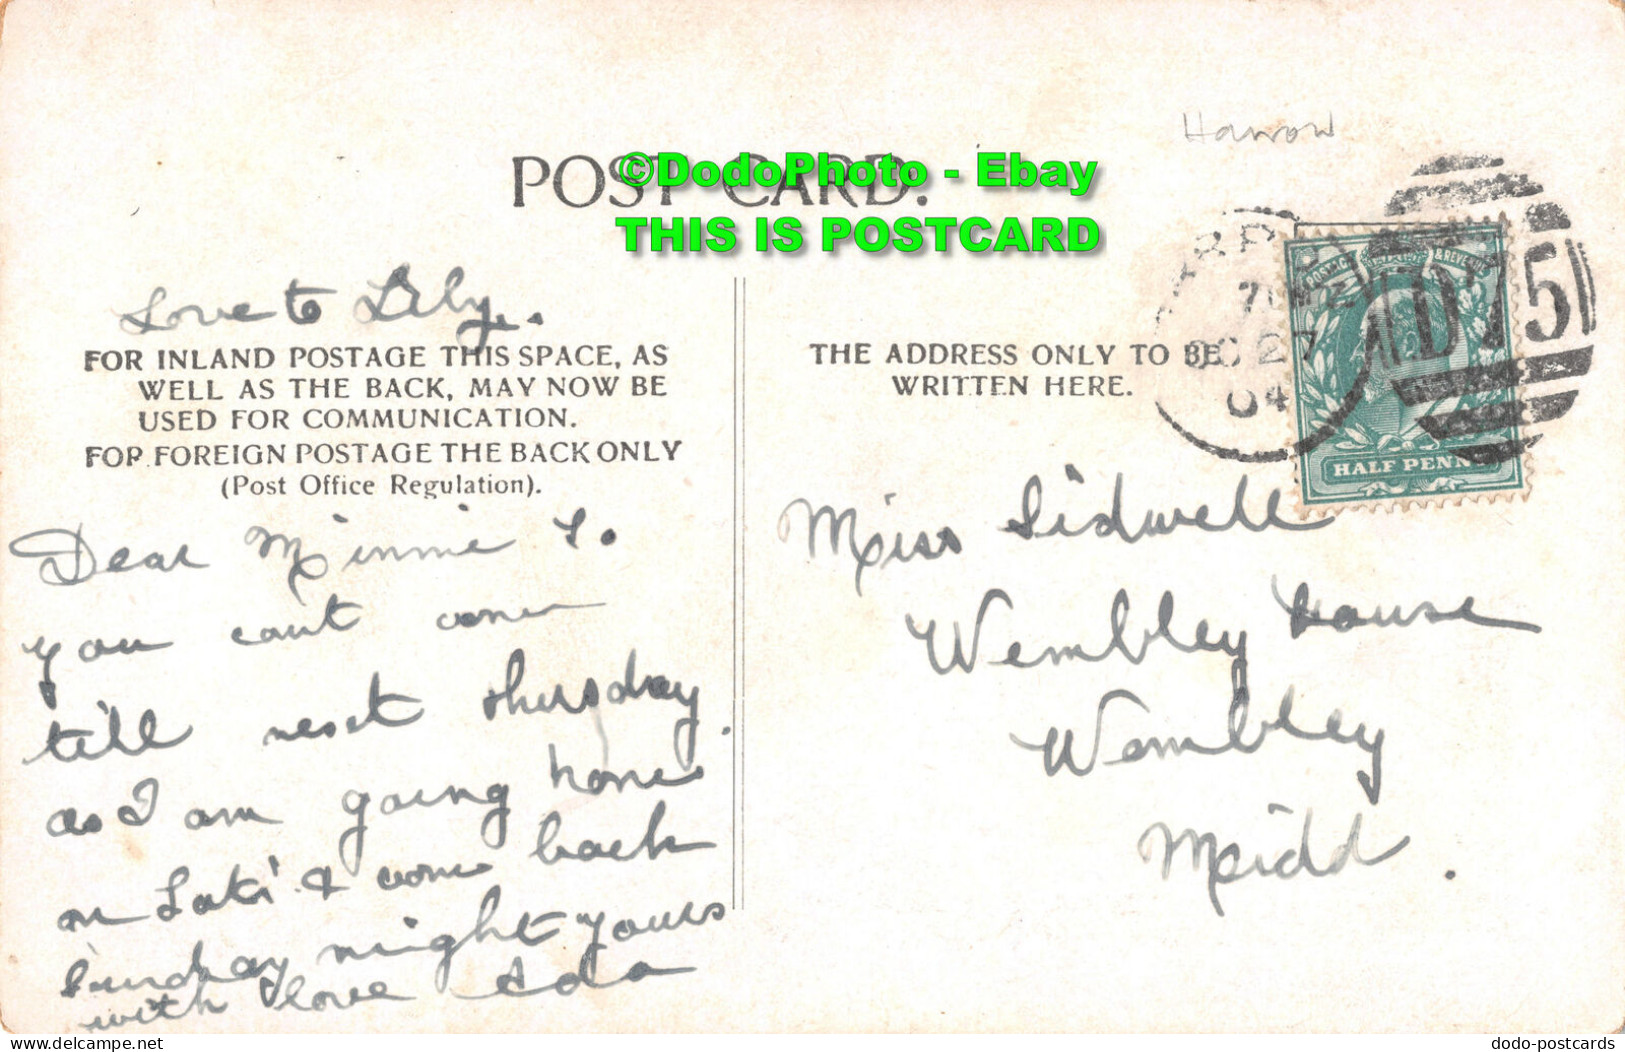 Harrow
POST CARD.
©DodoPhoto - Ebay
THIS IS POSTCARD
Love to Lily.
FOR INLAND POSTAGE THIS SPACE, AS
WELL AS THE BACK, MAY NOW BE
USED FOR COMMUNICATION.
FOR FOREIGN POSTAGE THE BACK ONLY
(Post Office Regulation).
Dear Minnie So
you cant come
till next thursday
as I am going home
on Sat & come back
Sunday night yours
with love Ada
THE ADDRESS ONLY TO BE
WRITTEN HERE.
OC 27
04
D75
POSTAGE & REVENUE
HALF PENNY
Miss Sidwell
Wembley House
Wembley
Midd.
dodo-postcards
delcampe.net